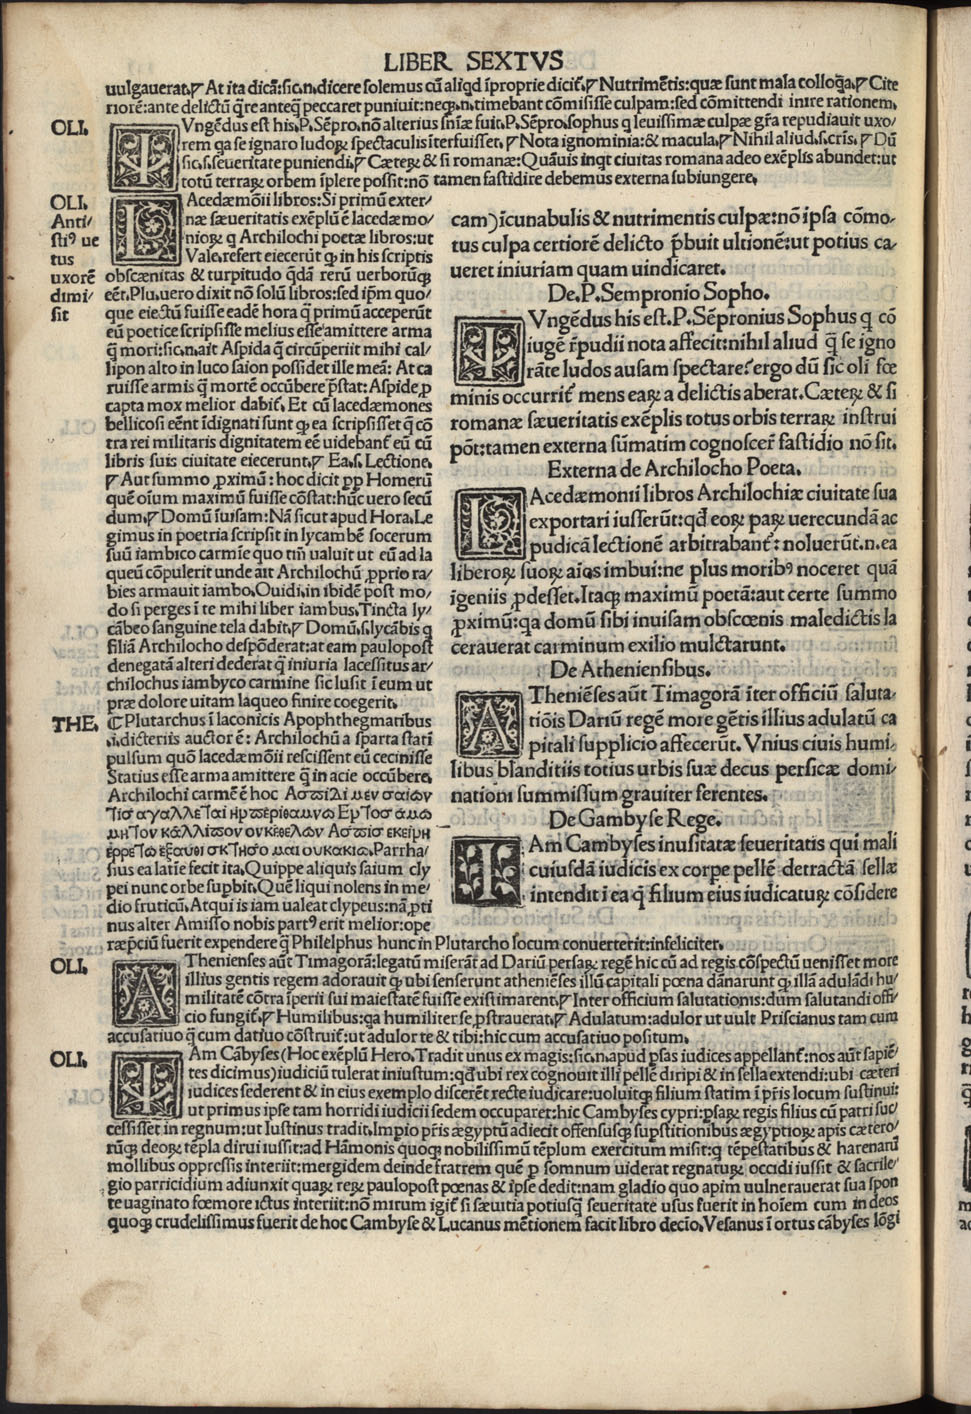 LIBER SEXTVS
uulgauerat.⁋ At ita dicā: sic.n.dicere solemus cū aliqd īproprie dicit̄.⁋ Nutrimētis: quæ sunt mala colloq̄a.⁋ Cite
riorē: ante delictū q̄re anteq̄ peccaret puniuit: neq;.n.timebant cōmisisse culpam: sed cōmittendi inire rationem.
OLI.
Vngēdus est his.P.Sēpro.nō alterius sn̄iæ fuit.P.Sēpro.sophus q leuissimæ culpæ gr̄a repudiauit uxo/
rem qa se ignaro ludoꝝ spectaculis īterfuisset.⁋ Nota ignominia: & macula.⁋ Nihil aliud.s.cr̄is.⁋ Dū
sic.s.seueritate puniendi.⁋ Cæteꝝ & si romanæ: Quāuis inqt ciuitas romana adeo exēplis abundet: ut
totū terraꝝ orbem īplere possit: nō tamen fastidire debemus externa subiungere.
OLI.
Anti/
sti⁹ ue
tus
uxorē
dimi/
sit
LAcedæmōii libros: Si primū exter/
næ sæueritatis exēplū ē lacedæmo/
nioꝝ q Archilochi poetæ libros: ut
Vale.refert eiecerūt ꝙ in his scriptis
obscænitas & turpitudo q̄dā rerū uerborūq;
eēt.Plu.uero dixit nō solū libros: sed ip̄m quo/
que eiectū fuisse eadē hora q̄ primū acceperūt
eū poetice scripsisse melius esse amittere arma
q̄ mori: sic.n.ait Aspida q̄ circūperiit mihi cal/
lipon alto in luco saion possidet ille meā: At ca
ruisse armis q̄ mortē occūbere p̄stat: Aspide ꝓ
capta mox melior dabit̄. Et cū lacedæmones
bellicosi eēnt īdignati sunt ꝙ ea scripsisset q̄ cō
tra rei militaris dignitatem eē uidebant̄ eū cū
libris suis ciuitate eiecerunt.⁋ Ea.s.Lectione.
⁋ Aut summo ꝓximū: hoc dicit ꝓp Homerū
quē oīum maximū fuisse cōstat: hūc uero secū
dum.⁋ Domū īuisam: Nā sicut apud Hora.Le
gimus in poetria scripsit in lycambē socerum
suū iambico carmīe quo tm̄ ualuit ut eū ad la
queū cōpulerit unde ait Archilochū ꝓprio ra/
bies armauit iambo.Ouidi.in ibidē post mo/
do si perges ī te mihi liber iambus.Tincta ly/
cābeo sanguine tela dabit.⁋ Domū.s.lycābis q
filiā Archilocho despōderat: at eam paulopost
denegatā alteri dederat q̄ iniuria lacessitus ar/
chilochus iambyco carmine sic lusit ī eum ut
præ dolore uitam laqueo finire coegerit.
THE.
⁌ Plutarchus ī laconicis Apophthegmatibus
.i.dicteriis auctor ē: Archilochū a sparta statī
pulsum quō lacedæmōii rescissent eū cecinisse
Statius esse arma amittere q̄ in acie occūbere.
Archilochi carmē ē hoc
Parrha/
sius ea latīe fecit ita.Quippe aliquis saium cly
pei nunc orbe suꝑbit.Quē liqui nolens in me/
dio fruticū.Atqui is iam ualeat clypeus: nā ꝑti
nus alter Amisso nobis part⁹ erit melior: ope
ræp̄ciū fuerit expendere q̄ Philelphus hunc in Plutarcho locum conuerterit: infeliciter.
cam) īcunabulis & nutrimentis culpæ: nō ipsa cōmo-
tus culpa certiorē delicto p̄buit ultionē: ut potius ca/
ueret iniuriam quam uindicaret.
De.P.Sempronio Sopho.
Vngēdus his est.P.Sēpronius Sophus q cō
iugē r̄pudii nota affecit: nihil aliud q̄ se igno
rāte ludos ausam spectare: ergo dū sic olī fœ
minis occurrit̄ mens eaꝝ a delictis aberat. Cæteꝝ & si
romanæ sæueritatis exēplis totus orbis terraꝝ instrui
pōt: tamen externa sūmatim cognoscer̄ fastidio nō sit.
Externa de Archilocho Poeta.
LAcedæmonii libros Archilochi æ ciuitate sua
exportari iusserūt: qd̄ eoꝝ paꝝ uerecundā ac
pudicā lectionē arbitrabant̄: noluerūt.n.ea
liberoꝝ suoꝝ aīos imbui: ne plus morib⁹ noceret quā
īgeniis ꝓdesset. Itaq; maximū poetā: aut certe summo
ꝓximū: qa domū sibi inuisam obscœnis maledictis la
cerauerat carminum exilio mulctarunt.
De Atheniensibus.
AThenieses aūt Timagorā īter officiū saluta/
tiōis Dariū regē more gētis illius adulatū ca
pitali supplicio affecerūt. Vnius ciuis humi/
libus blanditiis totius urbis suæ decus persicæ domi/
nationi summissum grauiter ferentes.
De Gambyse Rege.
IAm Cambyses inusitatæ seueritatis qui mali
cuiusdā iudicis ex corpe pellē detractā sellæ
intendit ī ea q̄ filium eius iudicatuꝝ cōsidere
OLI.
AThenienses aūt Timagorā: legatū miserāt ad Dariū persaꝝ regē hic cū ad regis cōspectū uenisset more
illius gentis regem adorauit ꝙ ubi senserunt atheniēses illū capitali pœna dānarunt ꝙ illā adulādi hu/
militatē cōtra īperii sui maiestatē fuisse existimarent.⁋ Inter officium salutationis: dum salutandi offi/
cio fungit̄.⁋ Humilibus: qa humiliter se ꝓstrauerat.⁋ Adulatum: adulor ut uult Priscianus tam cum
accusatiuo q̄ cum datiuo cōstruit̄: ut adulor te & tibi: hic cum accusatiuo positum.
OLI.
IAm Cābyses (Hoc exēplū Hero.Tradit unus ex magis: sic.n.apud p̄sas iudices appellant̄: nos aūt sapiē/
tes dicimus) iudiciū tulerat iniustum: qd̄ ubi rex cognouit illi pellē diripi & in sella extendi: ubi cæteri
iudices sederent & in eius exemplo discerēt recte iudicare: uoluitq; filium statim ī pr̄is locum sustinui:
ut primus ipse tam horridi iudicii sedem occuparet: hic Cambyses cypri: p̄saꝝ regis filius cū patri suc/
cessisset in regnum: ut Iustinus tradit.Impio pr̄is ægyptū adiecit offensusq; suꝑstitionibus ægyptioꝝ apis cætero/
rūq; deoꝝ tēpla dirui iussit: ad Hāmonis quoq; nobilissimū tēplum exercitum misit: q tēpestatibus & harenarū
mollibus oppressis interiit: mergidem deinde fratrem quē ꝑ somnum uiderat regnatuꝝ occidi iussit & sacrile/
gio parricidium adiunxit quaꝝ reꝝ paulopost pœnas & ipse dedit: nam gladio quo apim uulnerauerat sua spon
te uaginato fœmore ictus interiit: nō mirum igit̄ si sæuitia potiusq̄ seueritate usus fuerit in hoīem cum in deos
quoq; crudelissimus fuerit de hoc Cambyse & Lucanus mētionem facit libro decīo.Vesanus ī ortus cābyses lōgi